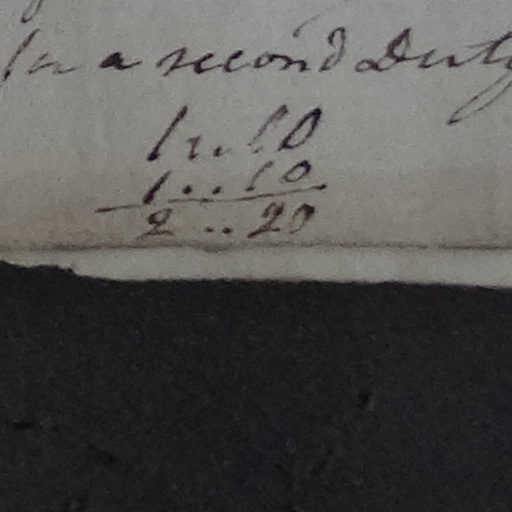 In a second Duty
1 .. 10
1 .. 10
2 .. 20